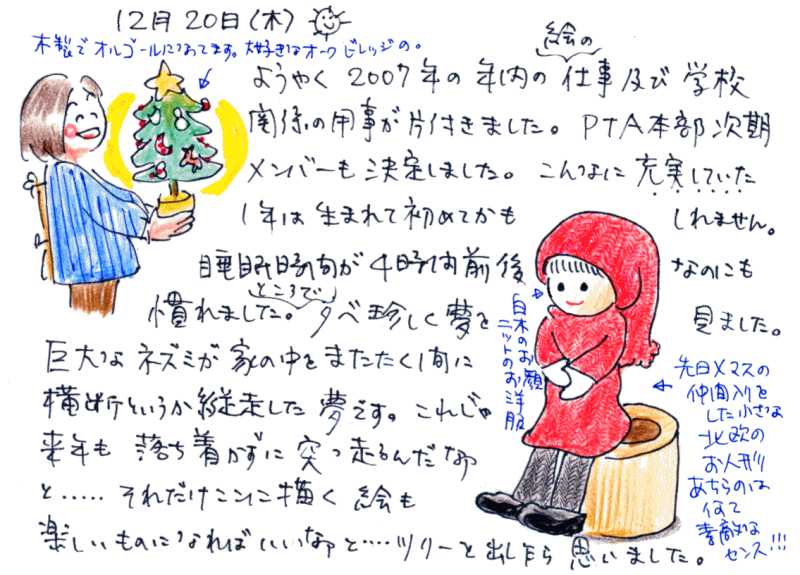 12月 20日(木)
木製でオルゴールになってます。大好きなオークビレッジの。
ようやく 2007年の年内の 絵の 仕事及び 学校
関係の用事が片付きました。PTA本部次期
メンバーも決定しました。こんなに充実していた
1年は生まれて初めてかも しれません。
睡眠時間が4時間前後 なのにも
慣れました。ところで 夕べ珍しく夢を 見ました。
巨大なネズミが家の中をまたたく間に
横断というか縦走した夢です。これじゃ
来年も落ち着かずに突っ走るんだなァ
と‥‥‥それだけにここに描く絵も
楽しいものになればいいなァと‥‥ツリーを出しながら思いました。
白木のお顔
ニットのお洋服
先日Xマスの
仲間入りを
した小さな
北欧の
お人形
あちらのは
何て
素敵な
センス!!!